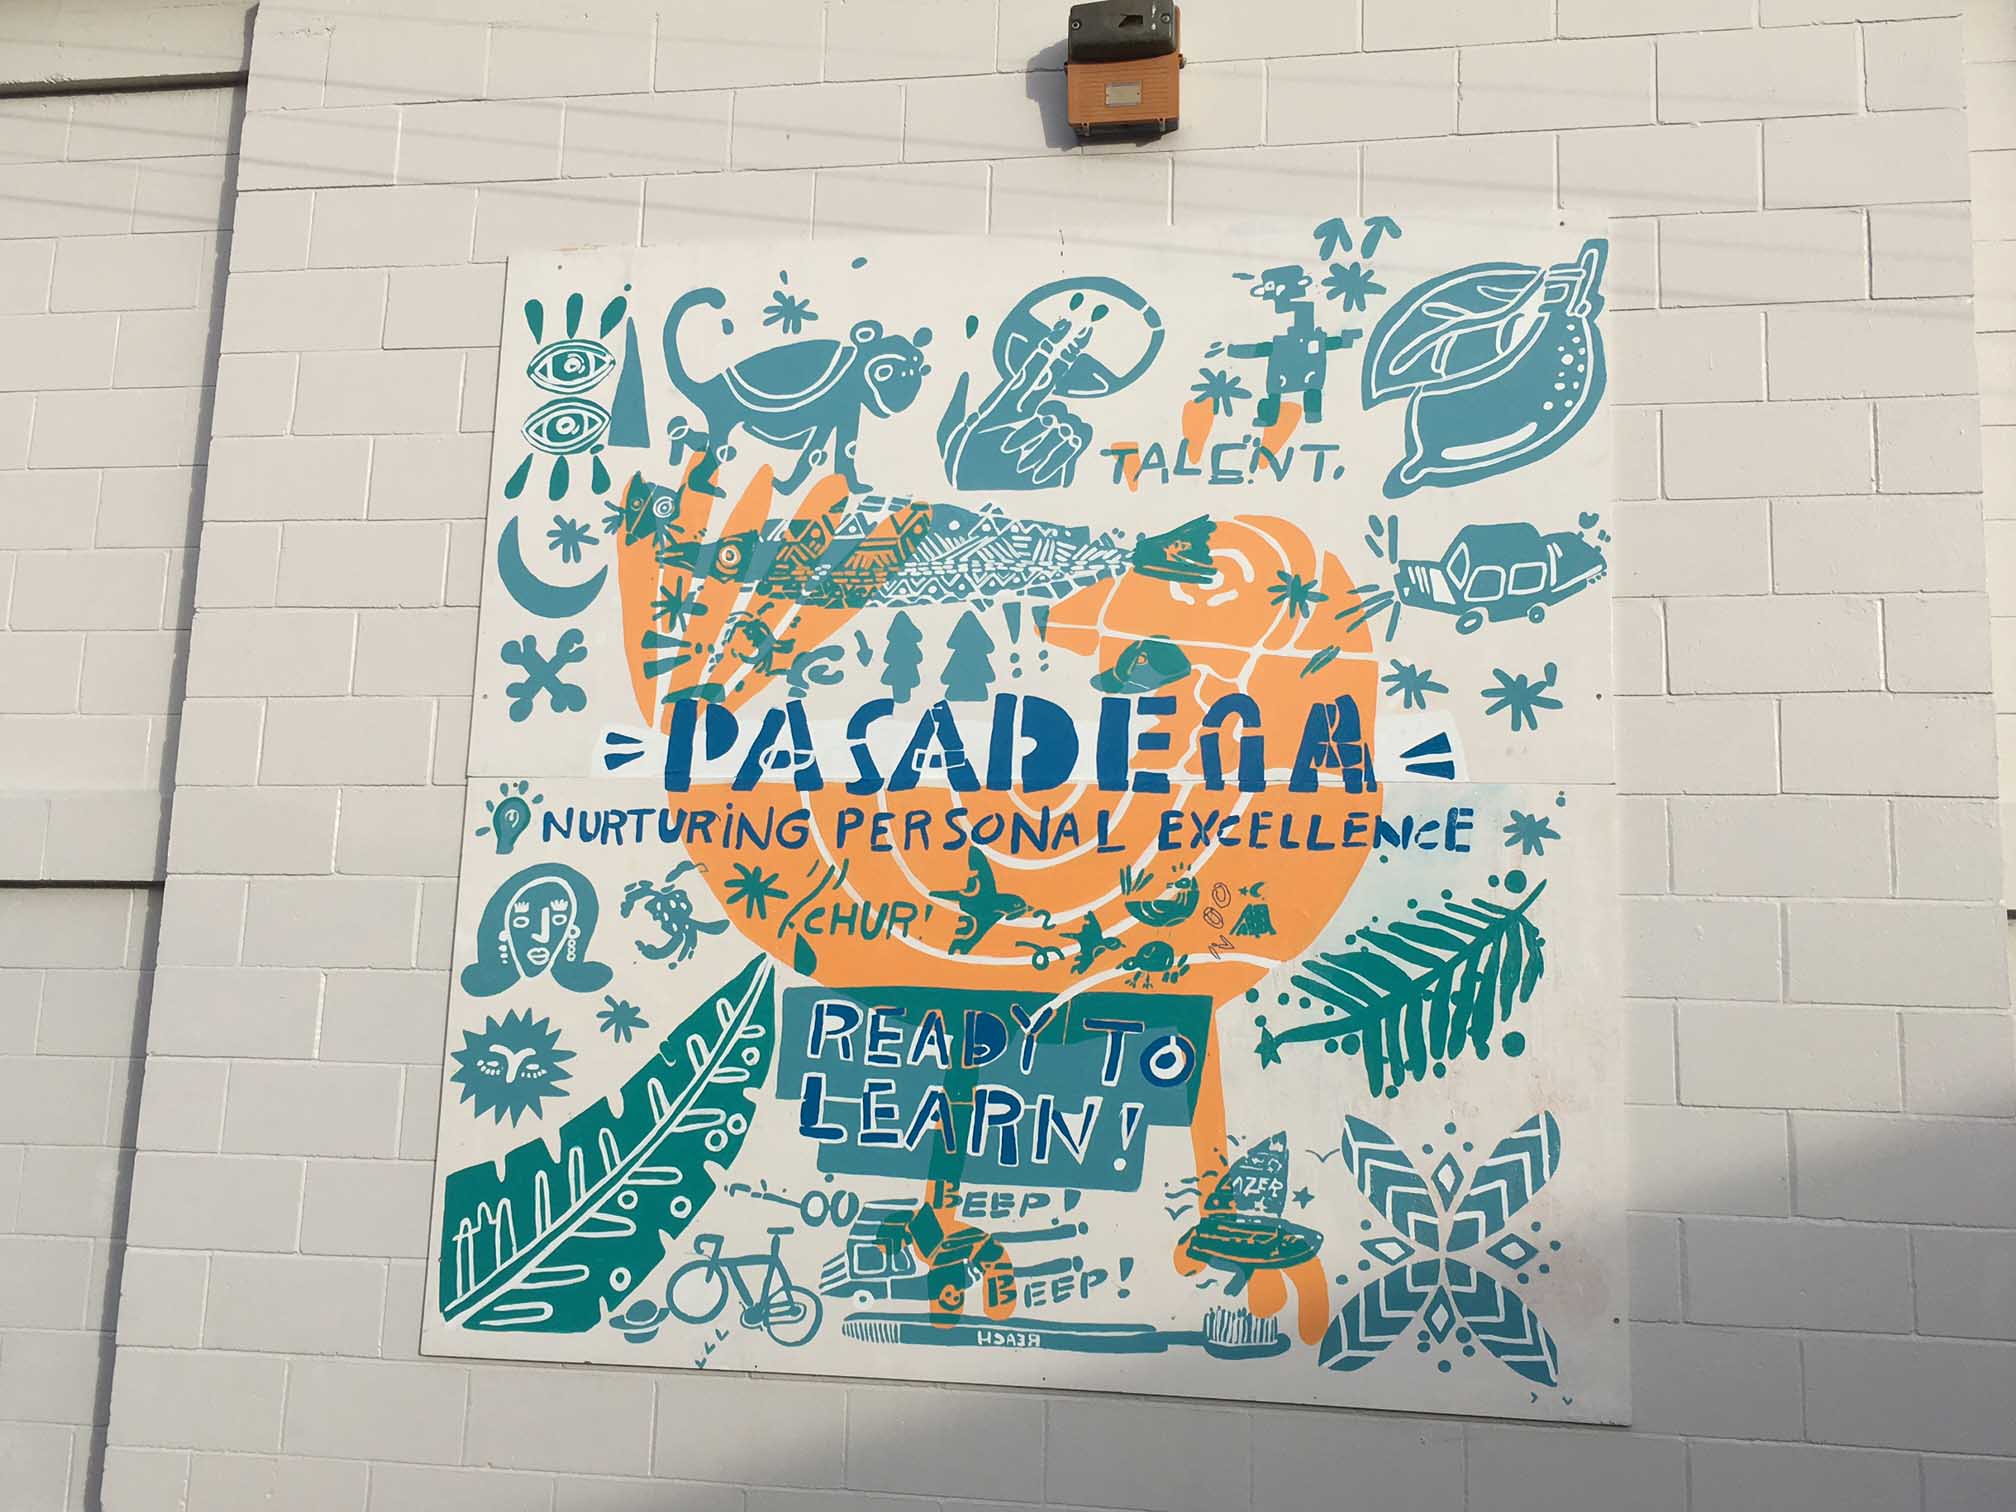 TALENT.
PASADENA
NURTURING PERSONAL EXCELLENCE
CHUR!
READY TO
LEARN!
BEEP!
LAZER
& BEEP!
REACH